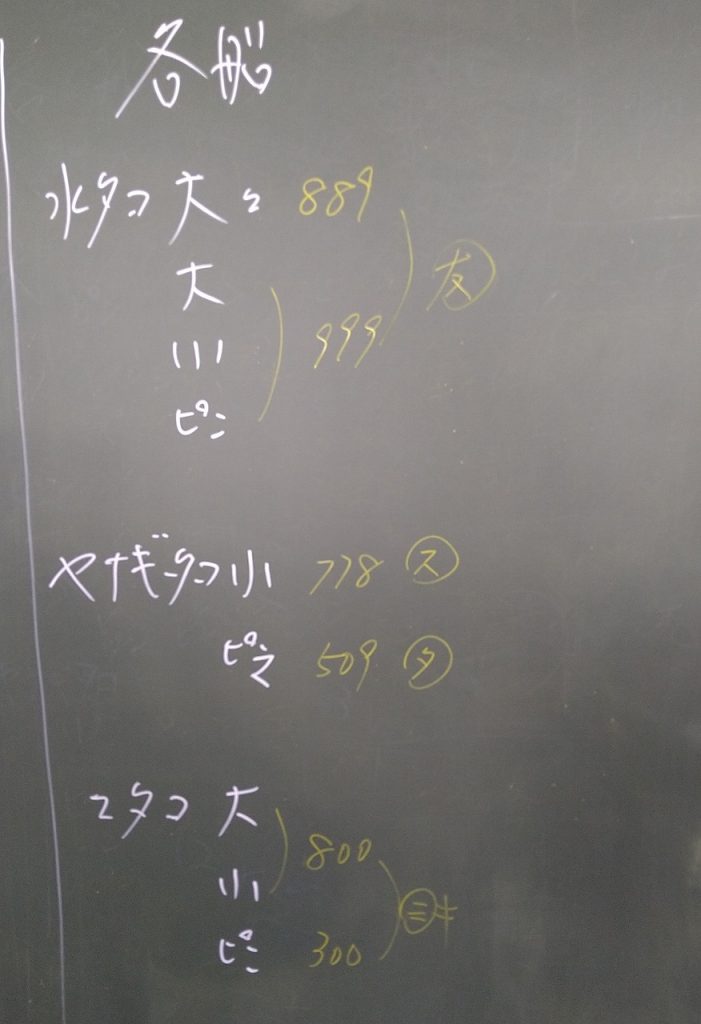 各船
水タコ 大々 889
大
小 999 友
ピン
ヤナギタコ 小 778 ス
ピン 509 タ
マタコ 大
800
小
ミキ
ピン 300